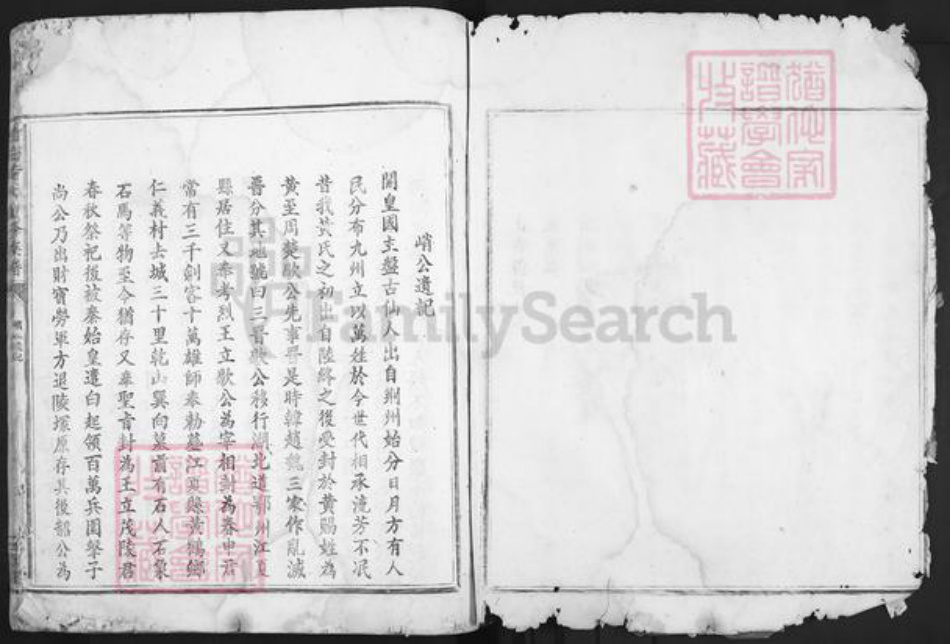 峭公遺記
開皇國主盤古仙人出自荆州始分日月方有人
民分布九州立以萬姓於今世代相承流芳不泯
昔我黃氏之初出自陸終之後受封於黃賜姓為
黃至周奠歇公先事晋是時韓趙魏三家作亂滅
晋分其地號曰三晋歇公移行湖北道鄂州江夏
縣居住又奉考烈王立歇公為宰相封為春申君
常有三千劍客十萬雄師奉勅墓江夏縣黃鶴鄉
仁義村去城三十里乾山巽向墓前有石人石象
石馬等物至今猶存又奉聖旨封為王立茂陵君
春秋祭祀後被秦始皇遣白起領百萬兵圍擊子
尚公乃出財寶勞軍方退陵塚原存其後韶公為
FamilySearch
猶他家
譜學會
收藏